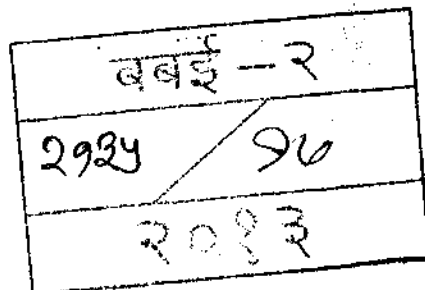 बबई - २
२१३५ / १७
२०१३